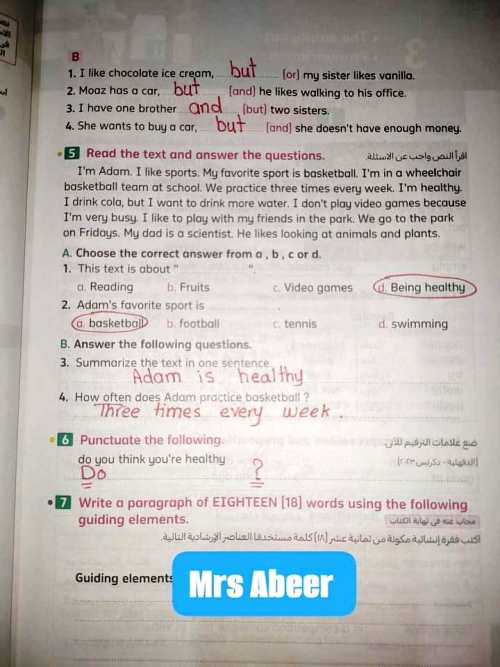 B
1. I like chocolate ice cream, but (or) my sister likes vanilla.
2. Moaz has a car, but (and) he likes walking to his office.
3. I have one brother and (but) two sisters.
4. She wants to buy a car, but (and) she doesn't have enough money.
5 Read the text and answer the questions. اقرأ النص واجب عن الاسئلة.
I'm Adam. I like sports. My favorite sport is basketball. I'm in a wheelchair
basketball team at school. We practice three times every week. I'm healthy.
I drink cola, but I want to drink more water. I don't play video games because
I'm very busy. I like to play with my friends in the park. We go to the park
on Fridays. My dad is a scientist. He likes looking at animals and plants.
A. Choose the correct answer from a , b , c or d.
1. This text is about " ".
a. Reading b. Fruits c. Video games d. Being healthy
2. Adam's favorite sport is
a. basketball b. football c. tennis d. swimming
B. Answer the following questions.
3. Summarize the text in one sentence.
Adam is healthy
4. How often does Adam practice basketball ?
Three times every week.
6 Punctuate the following. ضع علامات الترقيم للآتي.
do you think you're healthy (الدقهلية - دكرنس ٢٠٢٣)
Do ?
7 Write a paragraph of EIGHTEEN (18) words using the following
guiding elements. مجاب عنه في نهاية الكتاب
اكتب فقرة إنشائية مكونة من ثمانية عشر (١٨) كلمة مستخدمًا العناصر الإرشادية التالية.
Guiding elements
Mrs Abeer